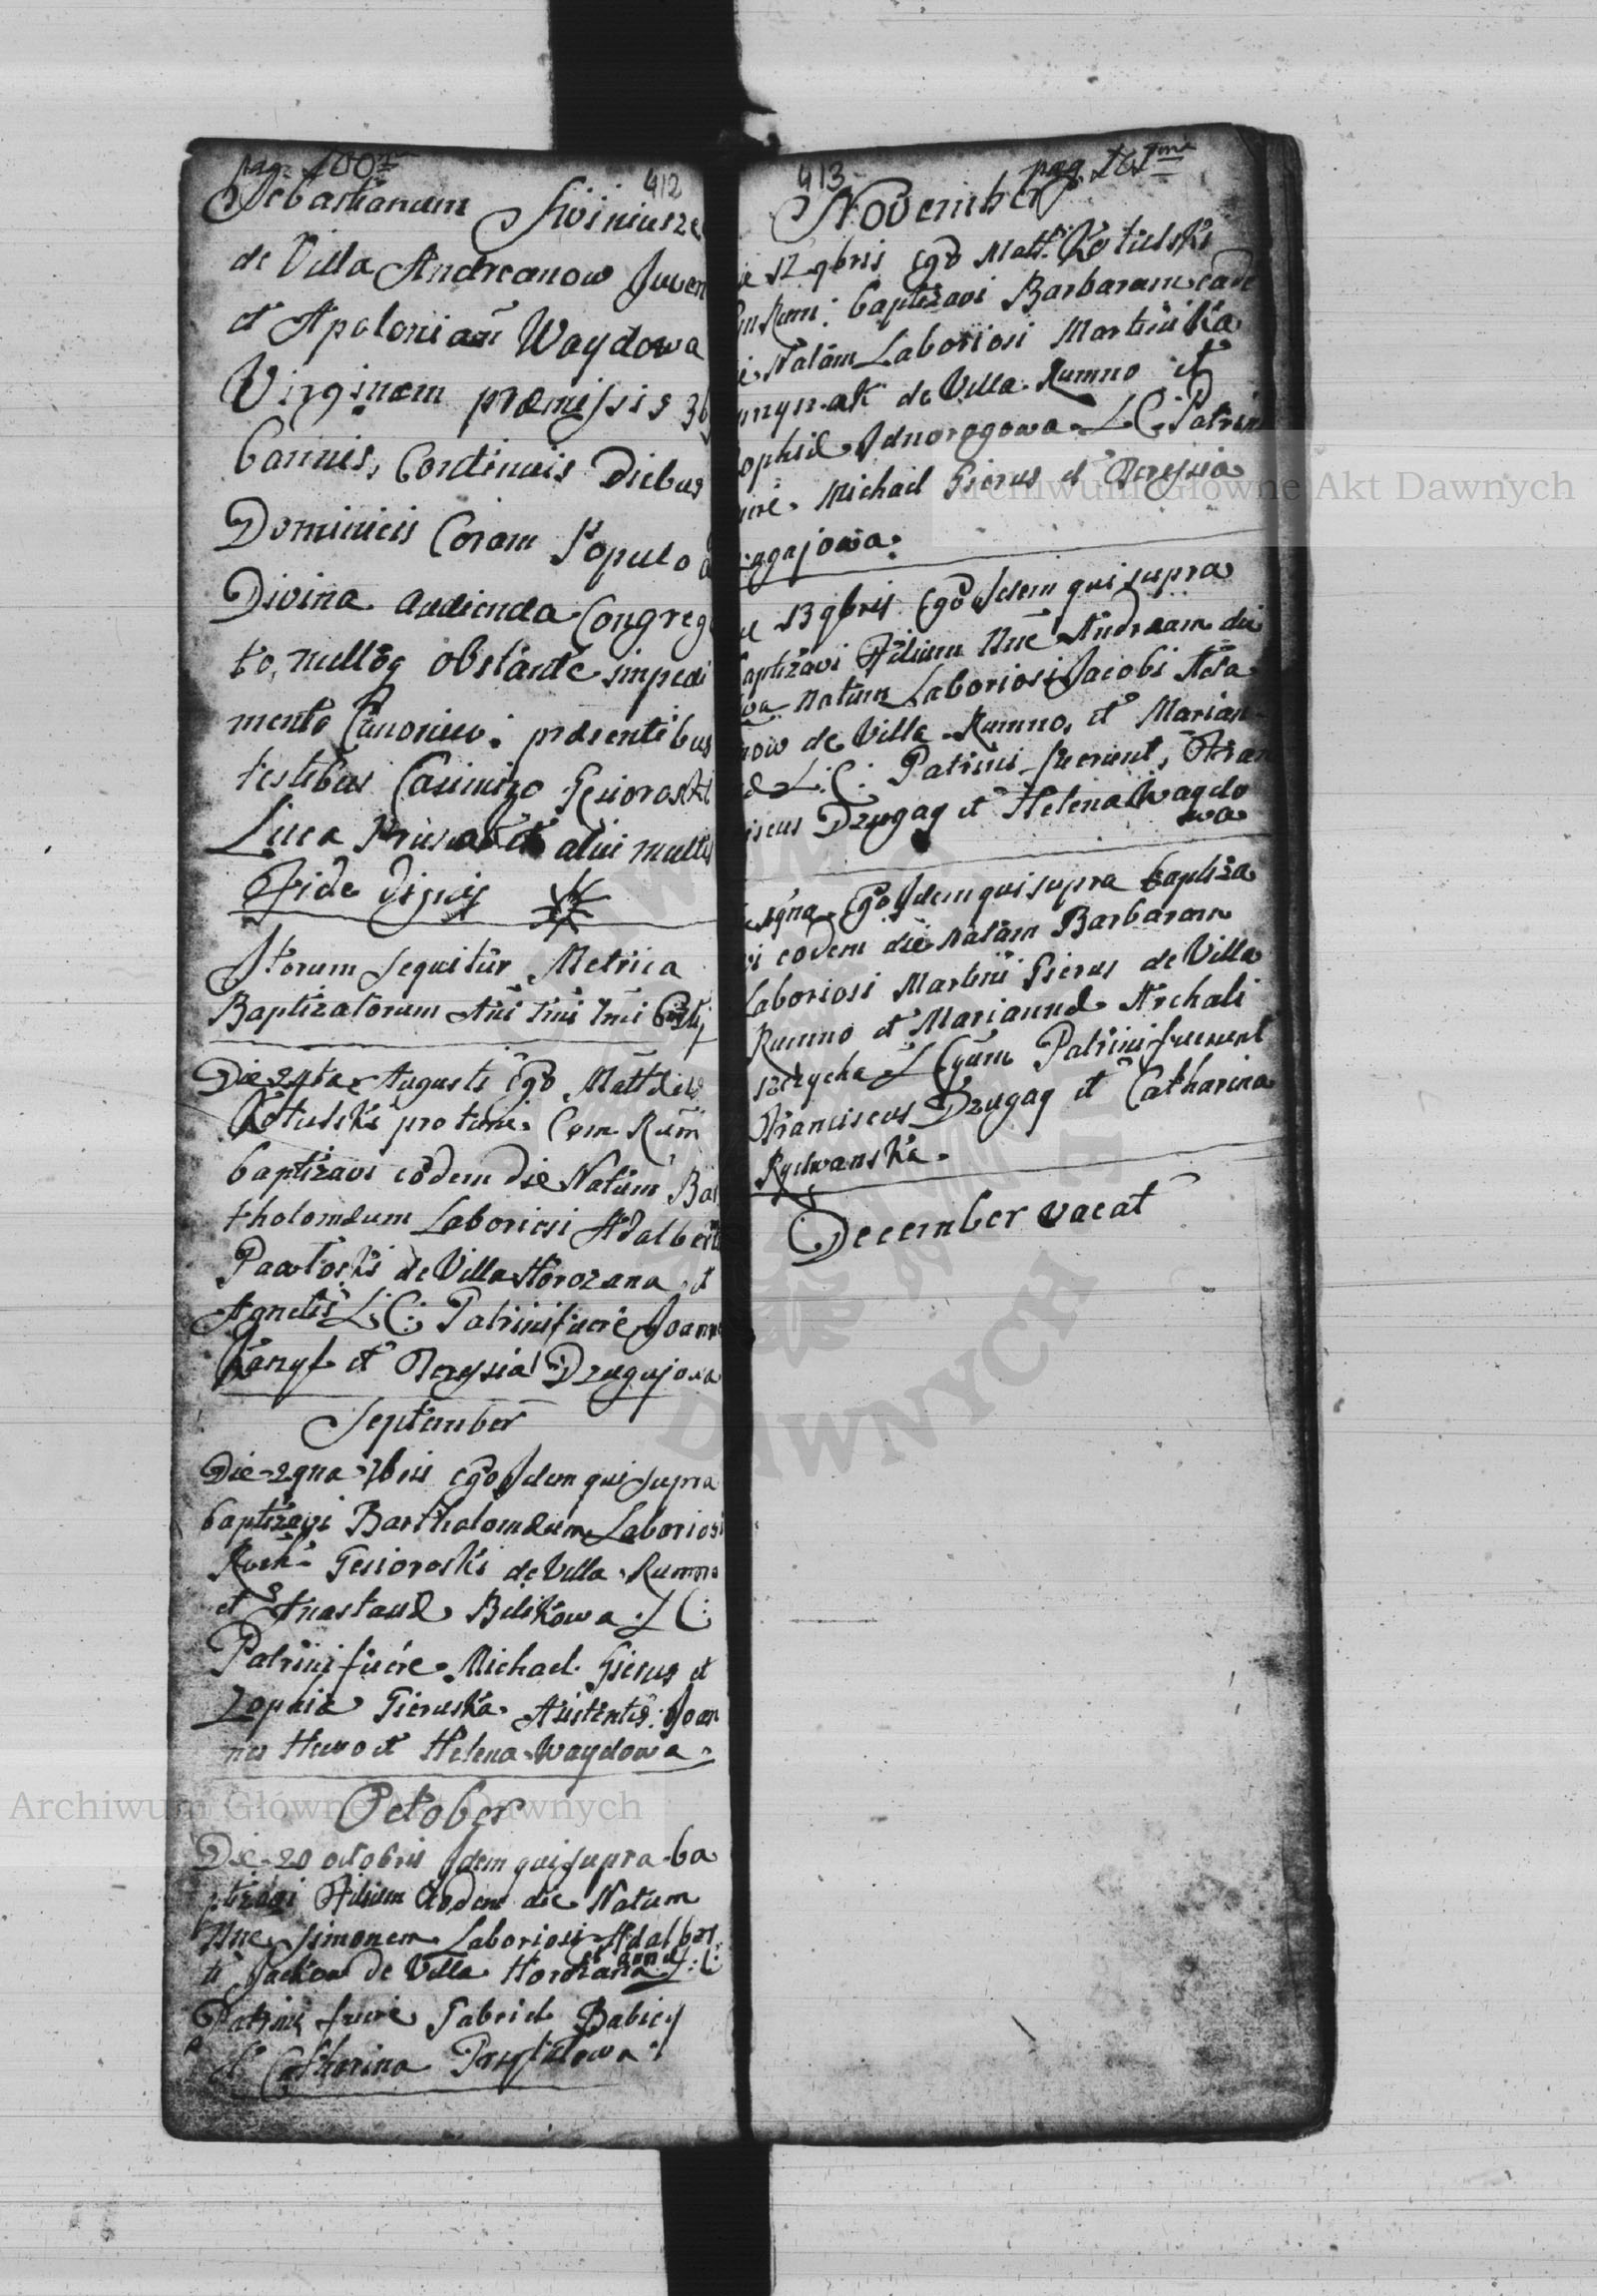 pag. 100
412
Sebastianum Swiniusze
de Villa Andreanow Juven
et Apoloniam Waydowa
Virginem præmissis 3b
bannis, Continuis Diebus
Dominicis Coram Populo a
Divina audienda Congrega
to, nulloq obstante impedi
mento Canonico: præsentibus
testibus Casimiro Gsioroski
Luca et alui multis
Fide dignis
Itorum sequitur Metrica
Baptizatorum
Die 24ta Augusti Ego Mattheus
Kotulski pro tunc Com Rum
baptizavi eodem die Natum Bar
tholomæum Laboriosi Adalberti
Pawłoski de Villa Horozana et
Agnetis L: C: Patrini fuere Joann
et Teresia Dzugajowa
September
Die 2gna 7bris Ego Idem qui supra
baptizavi Bartholomæum Laboriosi
Roch Gesioroski de Villa Rumno
et Anastasiæ Belikowa L C:
Patrini fuere Michael Gierus et
Zophia Gieruska Assistentes: Joan
nes et Helena Waydowa
October
Die 20 octobris Idem qui supra ba
ptizavi Filium Eodem die Natum
Nne Simonem Laboriosi Adalber
ti Jackow de Villa Horozana et Annæ L: C:
Patrini fuere Gabriel Babicz
et Catharina
413
pag. 101
November
ie 12 9bris Ego Matt: Kotulski
Com Rum: baptizavi Barbaram eade
ie Natam Laboriosi Martini Ka
de Villa Rumno et
ophiæ Idnorogowa L C Patrini
uere Michael Gierus et Teressia
ugajowa.
ie 13 9bris Ego Idem qui supra
aptizavi Filium Nne Andream die
Natum Laboriosi Jacobi Ada
mow de Villa Rumno, et Marian
æ L: C: Patrini fuerunt, Fran
iscus Dzugay et Helena Waydo
wa
Ego Idem qui supra baptiza
vi eodem die Natam Barbaram
Laboriosi Martini Gierus de Villa
Rumno et Mariannæ Archali
szczycha L Cgum Patrini fuerunt
Franciscus Dzugay et Catharina
Rychwanska.
December vacat
Archiwum Główne Akt Dawnych
Archiwum Główne Akt Dawnych
DAWNYCH